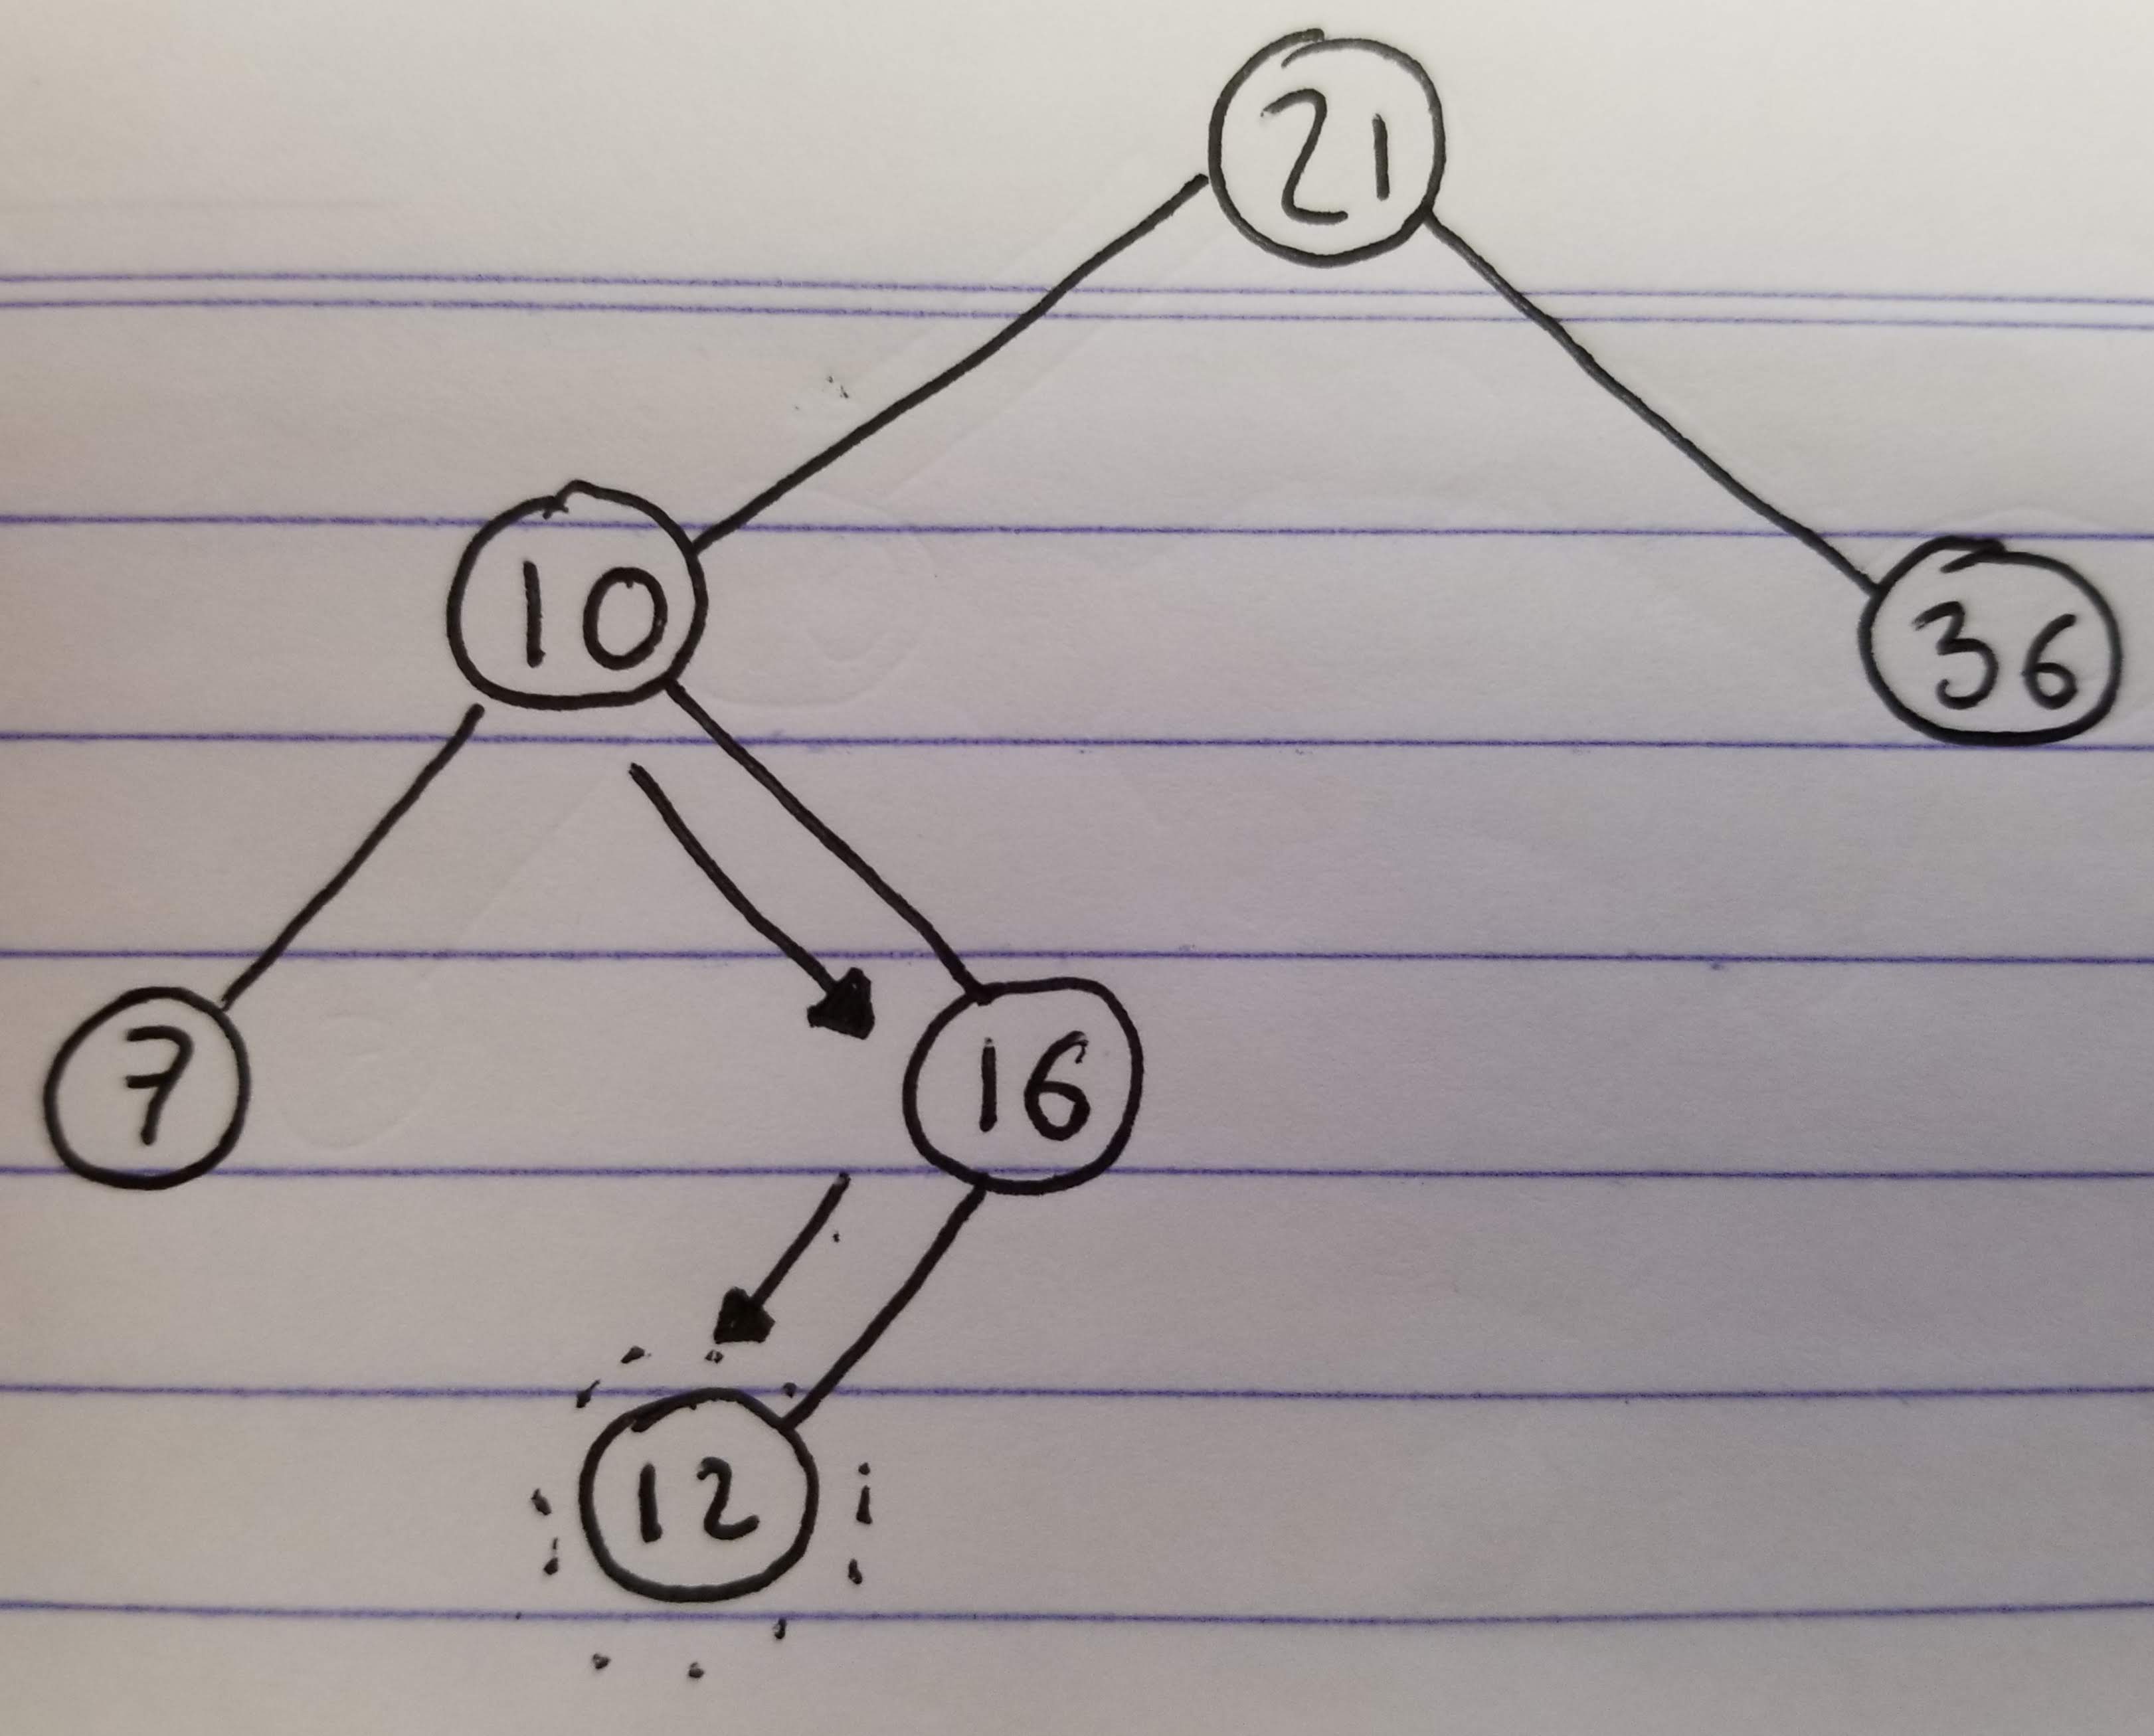 21
10
36
7
16
12